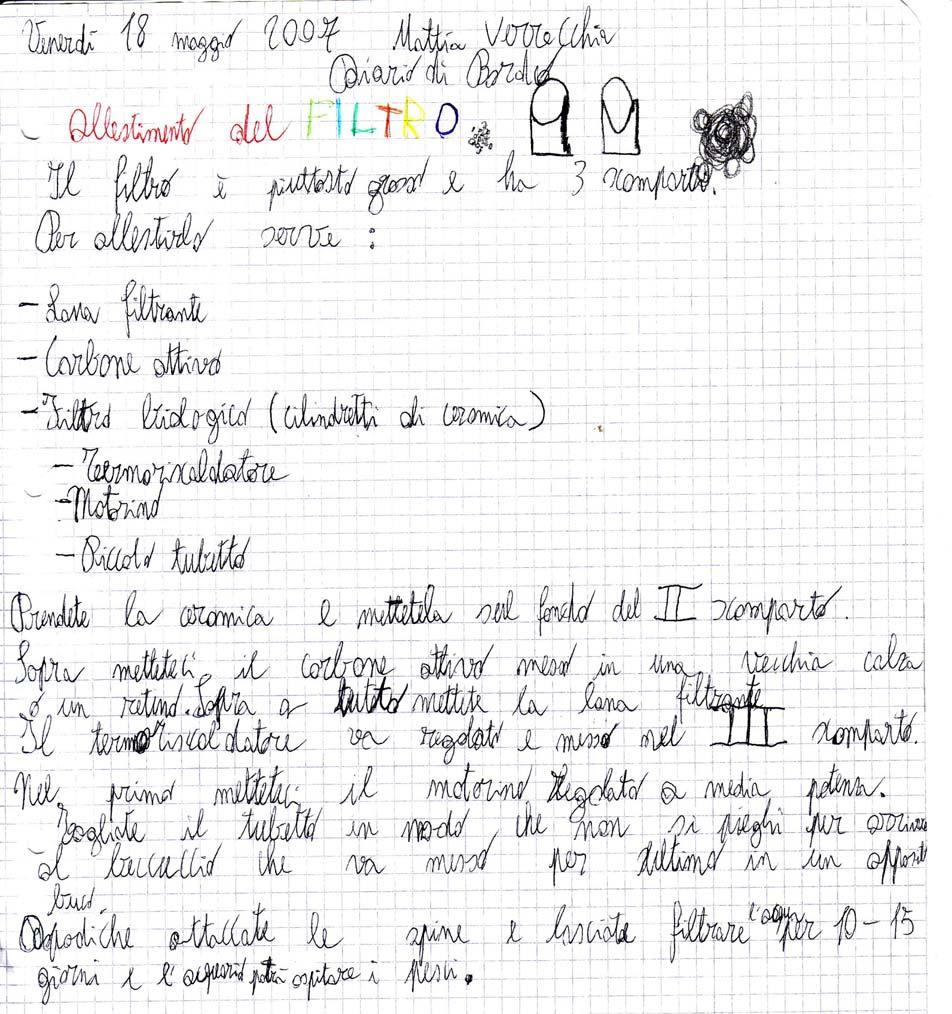 Venerdì 18 maggio 2007 Mattia Verrecchia
Diario di Bordo
- Allestimento del FILTRO.
Il filtro è piuttosto grosso e ha 3 scomparti.
Per allestirlo serve :
- Lana filtrante
- Carbone attivo
- Filtro biologico (cilindretti di ceramica)
- Termoriscaldatore
- Motorino
- Piccolo tubetto
Prendete la ceramica e mettetela sul fondo del II scomparto.
Sopra metteteci il carbone attivo messo in una vecchia calza
o un retino. Sopra a tutto mettete la lana filtrante
Il termoriscaldatore va regolato e messo nel III scomparto.
Nel primo metteteci il motorino regolato a media potenza.
Tagliate il tubetto in modo che non si pieghi per
al beccuccio che va messo per ultimo in un
buco.
Dopodiche attaccate le spine e lasciate filtrare l'acqua per 10-15
giorni e l'acquario potrà ospitare i pesci.